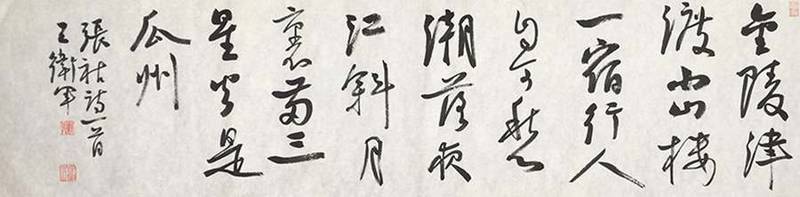 金陵津
渡小山樓
一宿行人
自可愁
潮落夜
江斜月
裏兩三
星火是
瓜州
張祜詩一首
王衛軍